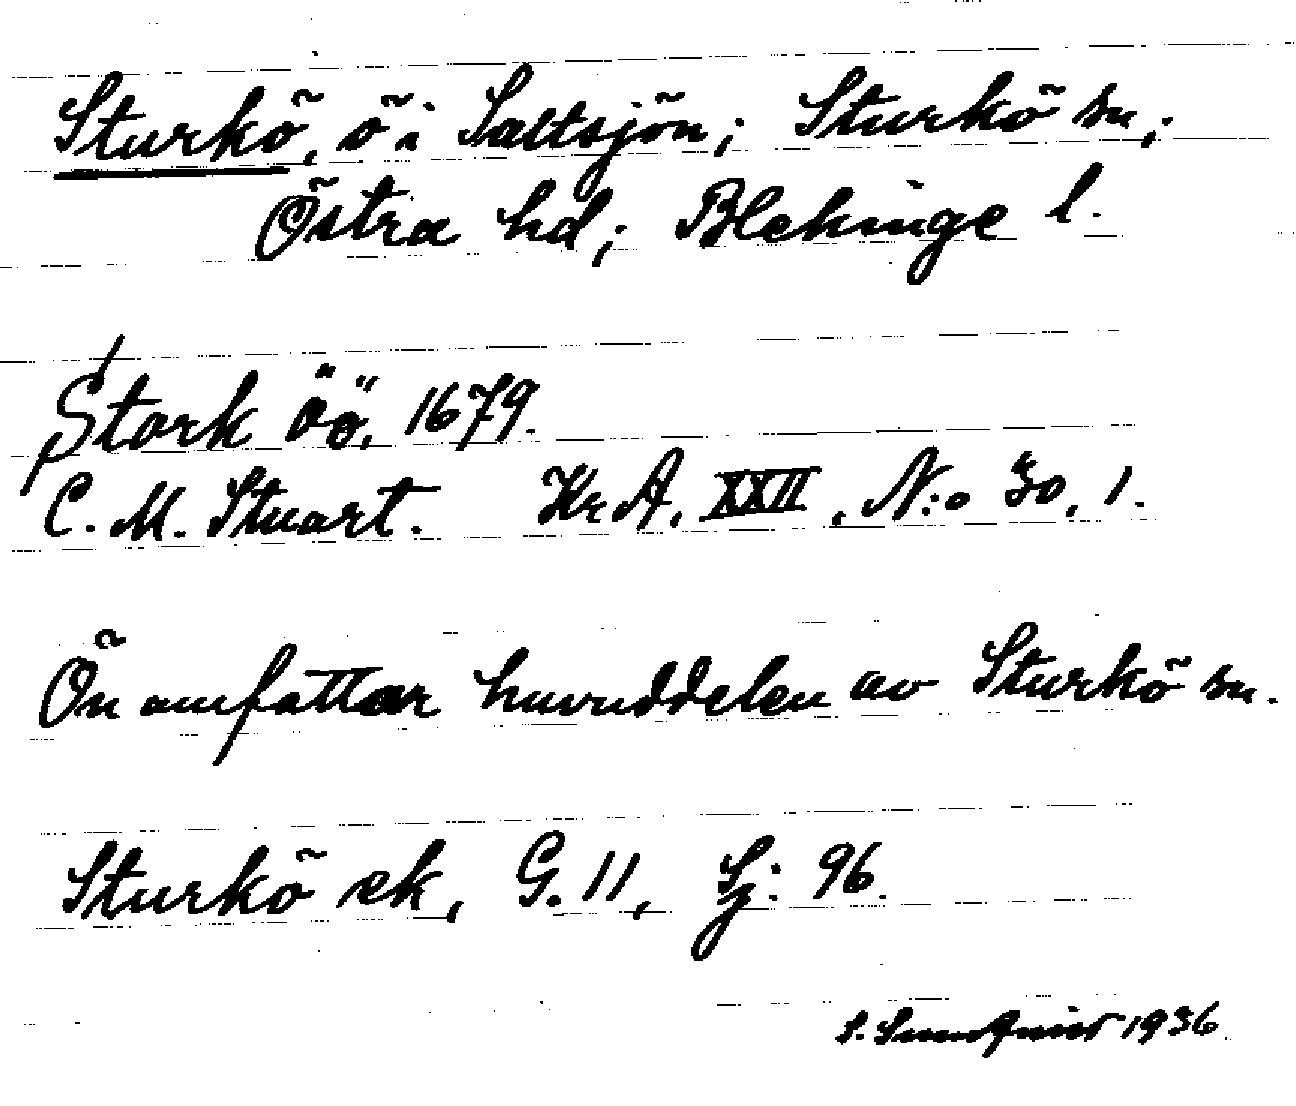 Sturkö, ö i Saltsjön; Sturkö sn,;
Östra hd; Blekinge l.
Stork öö, 1679.
C. M. Stuart. KrA, XXII, N:o 30, 1.
Ön omfattar huvuddelen av Sturkö sn.
Sturkö ek, G. 11, Sj: 96.
S. Sundquist 1936.